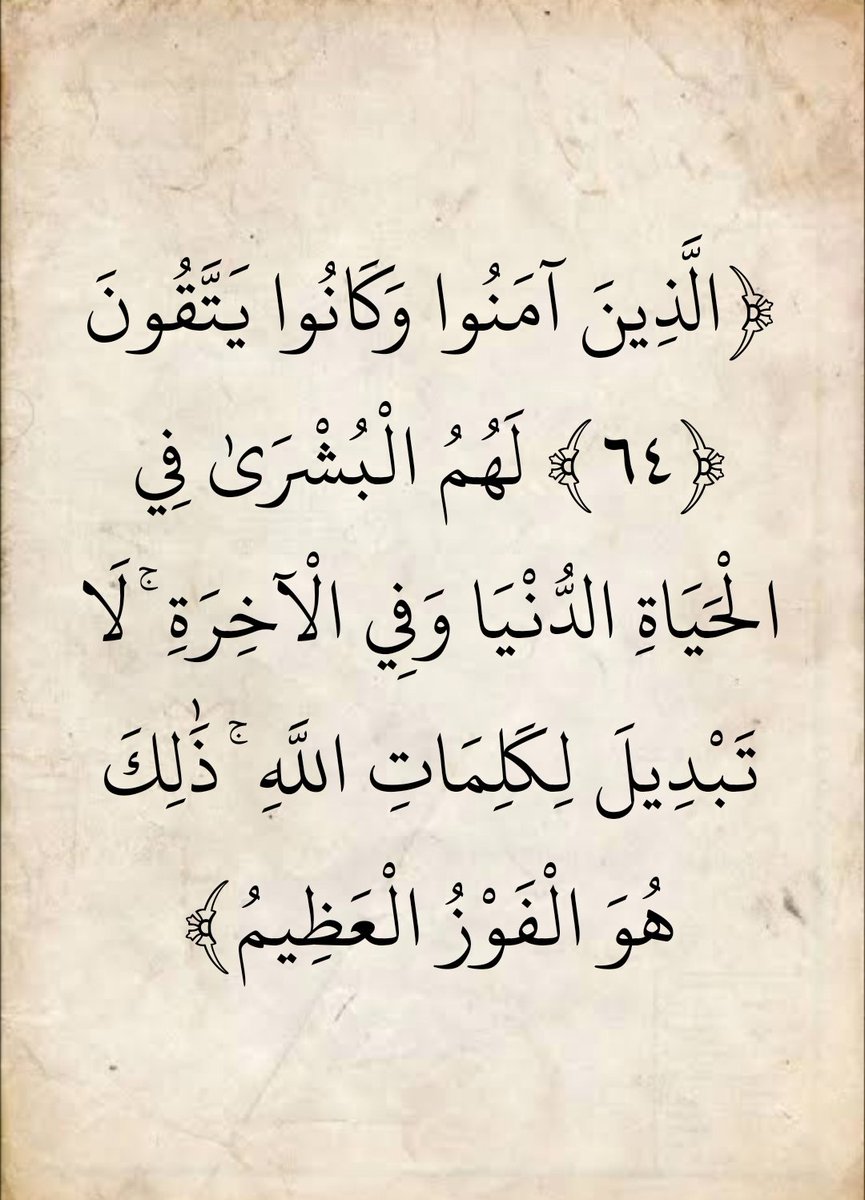 ﴿الَّذِينَ آمَنُوا وَكَانُوا يَتَّقُونَ
﴿٦٤﴾ لَهُمُ الْبُشْرَىٰ فِي
الْحَيَاةِ الدُّنْيَا وَفِي الْآخِرَةِ ۚ لَا
تَبْدِيلَ لِكَلِمَاتِ اللَّهِ ۚ ذَٰلِكَ
هُوَ الْفَوْزُ الْعَظِيمُ﴾